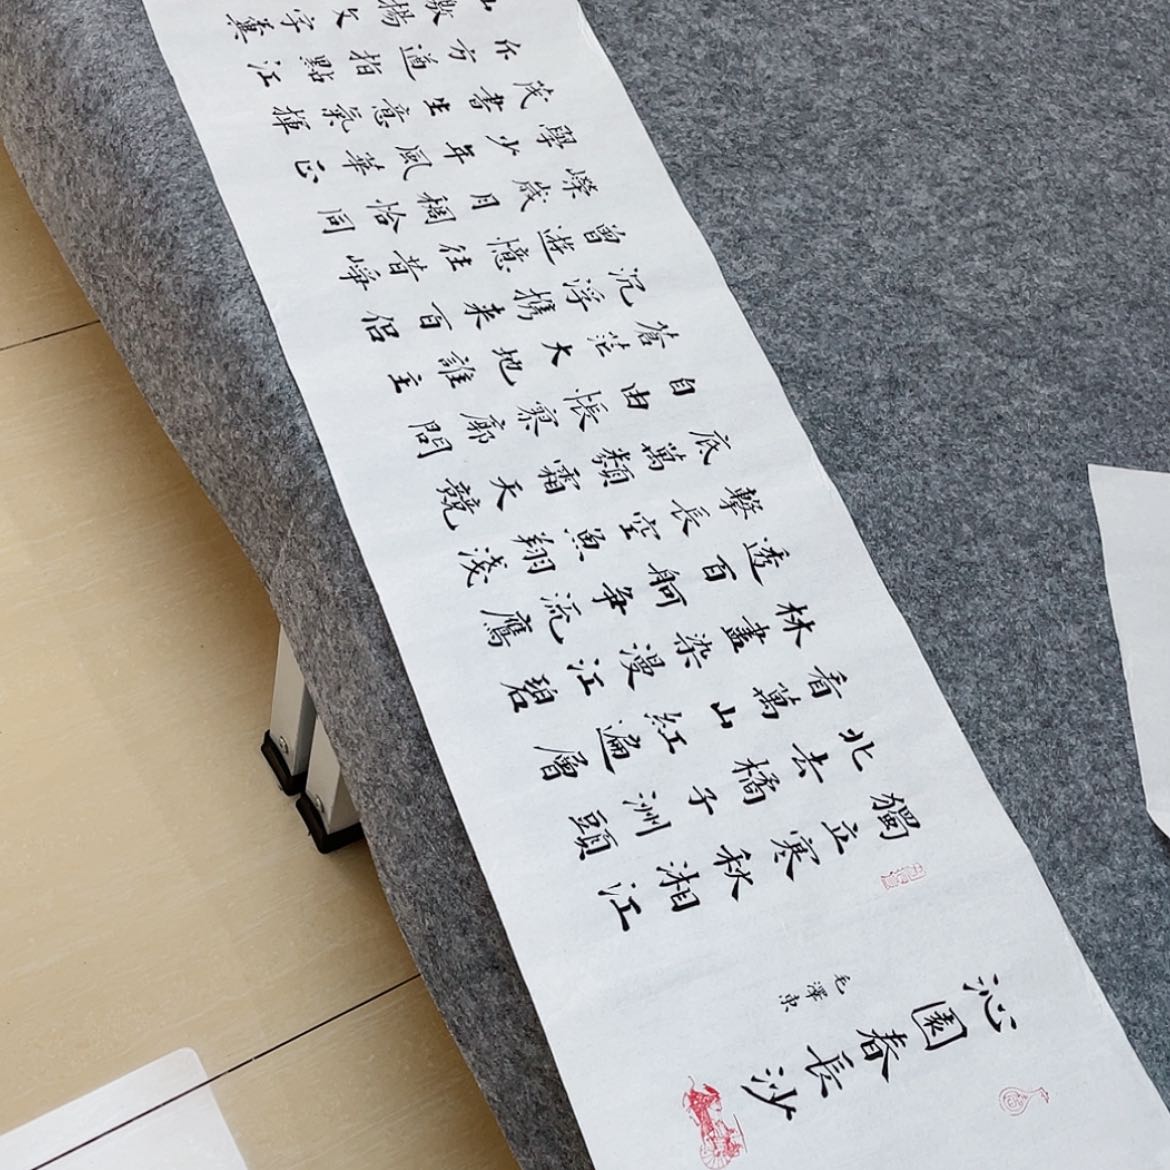 沁園春長沙
毛澤東
獨立寒秋湘江
北去橘子洲頭
看萬山紅遍層
林盡染漫江碧
透百舸争流鷹
擊長空魚翔淺
底萬類霜天競
自由悵寥廓問
蒼茫大地誰主
沉浮携来百侣
曾遊憶往昔崢
嶸歲月稠恰同
學少年風華正
茂書生意氣揮
斥方遒指點江
山激揚文字糞